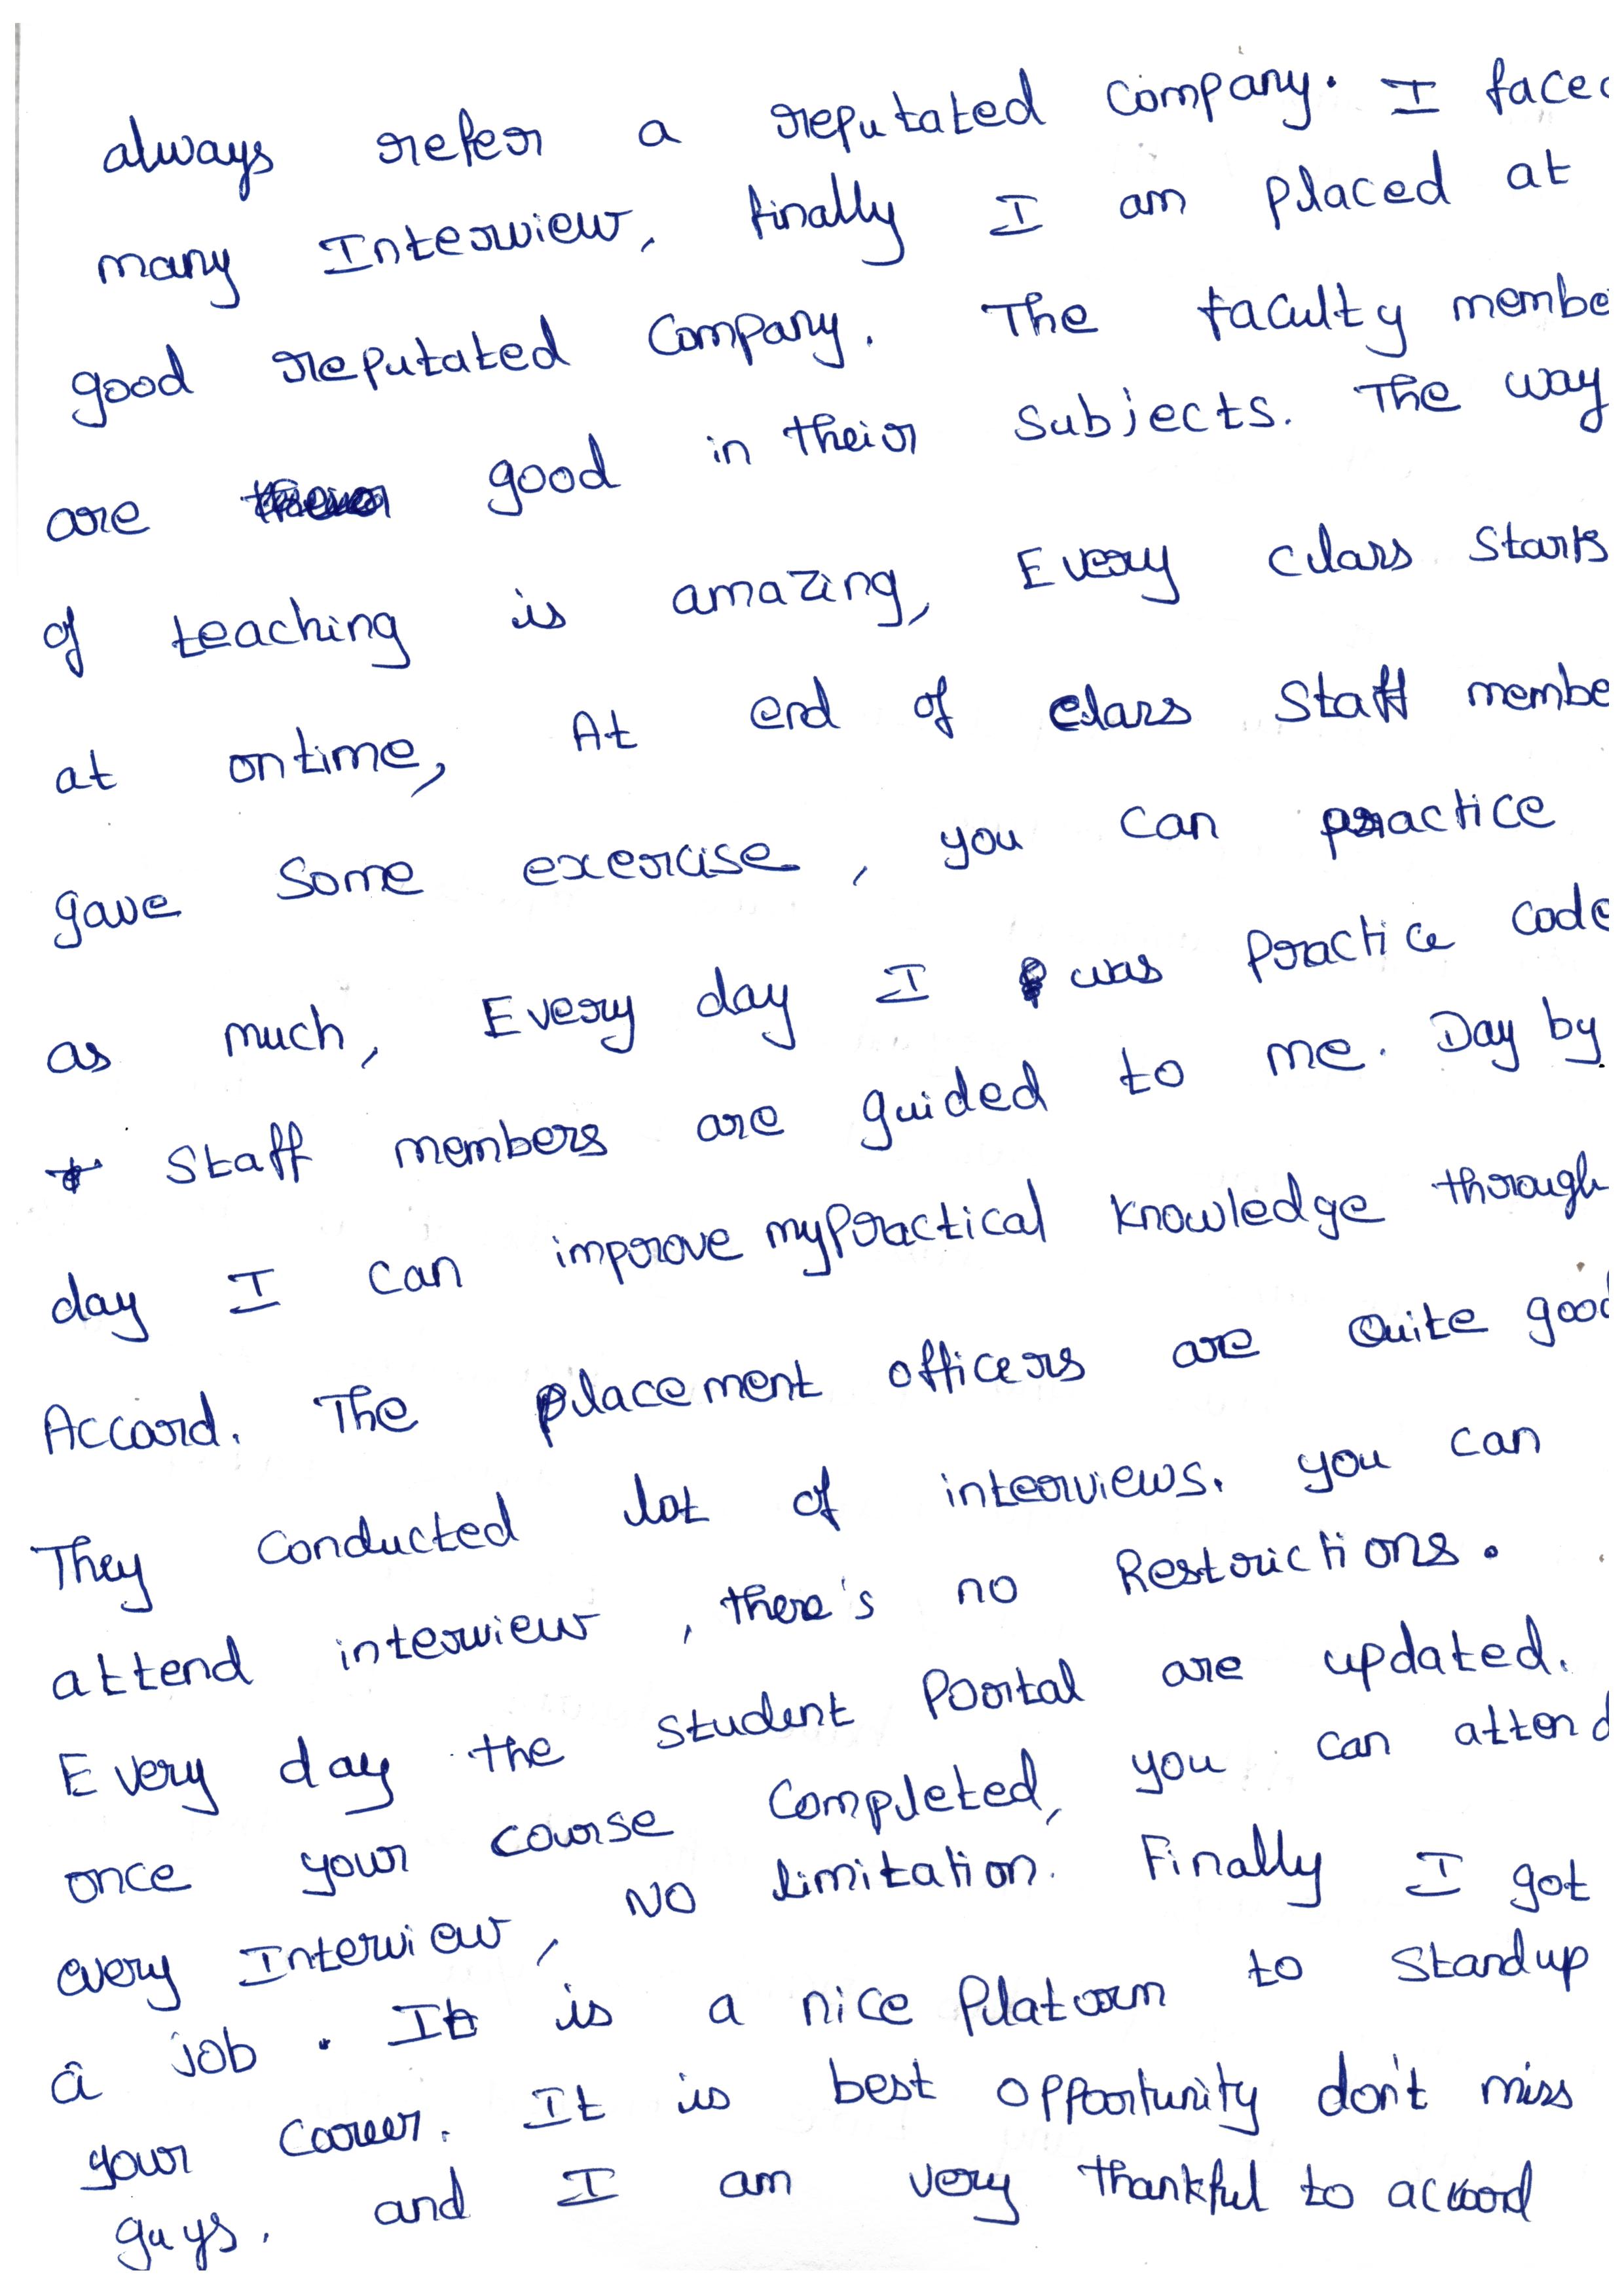 always refer a reputated Company. I faced
many Interview, finally I am placed at
good reputated Company. The faculty membe
are good in their Subjects. The way
of teaching is amazing, Every class Starts
at ontime, At end of class Staff membe
gave Some exercise, you can practice
as much, Every day I was Practice code
Staff members are guided to me. Day by
day I can improve my Practical knowledge through
Accord. The placement officers are Quite good
They Conducted lot of interviews. you can
attend interview, there's no Restrictions.
Every day the student Portal are updated.
once your course Completed, you can attend
every Interview, NO limitation. Finally I got
a job. It is a nice Platorm to Standup
your Career. It is best opportunity don't miss
guys. and I am very thankful to accord